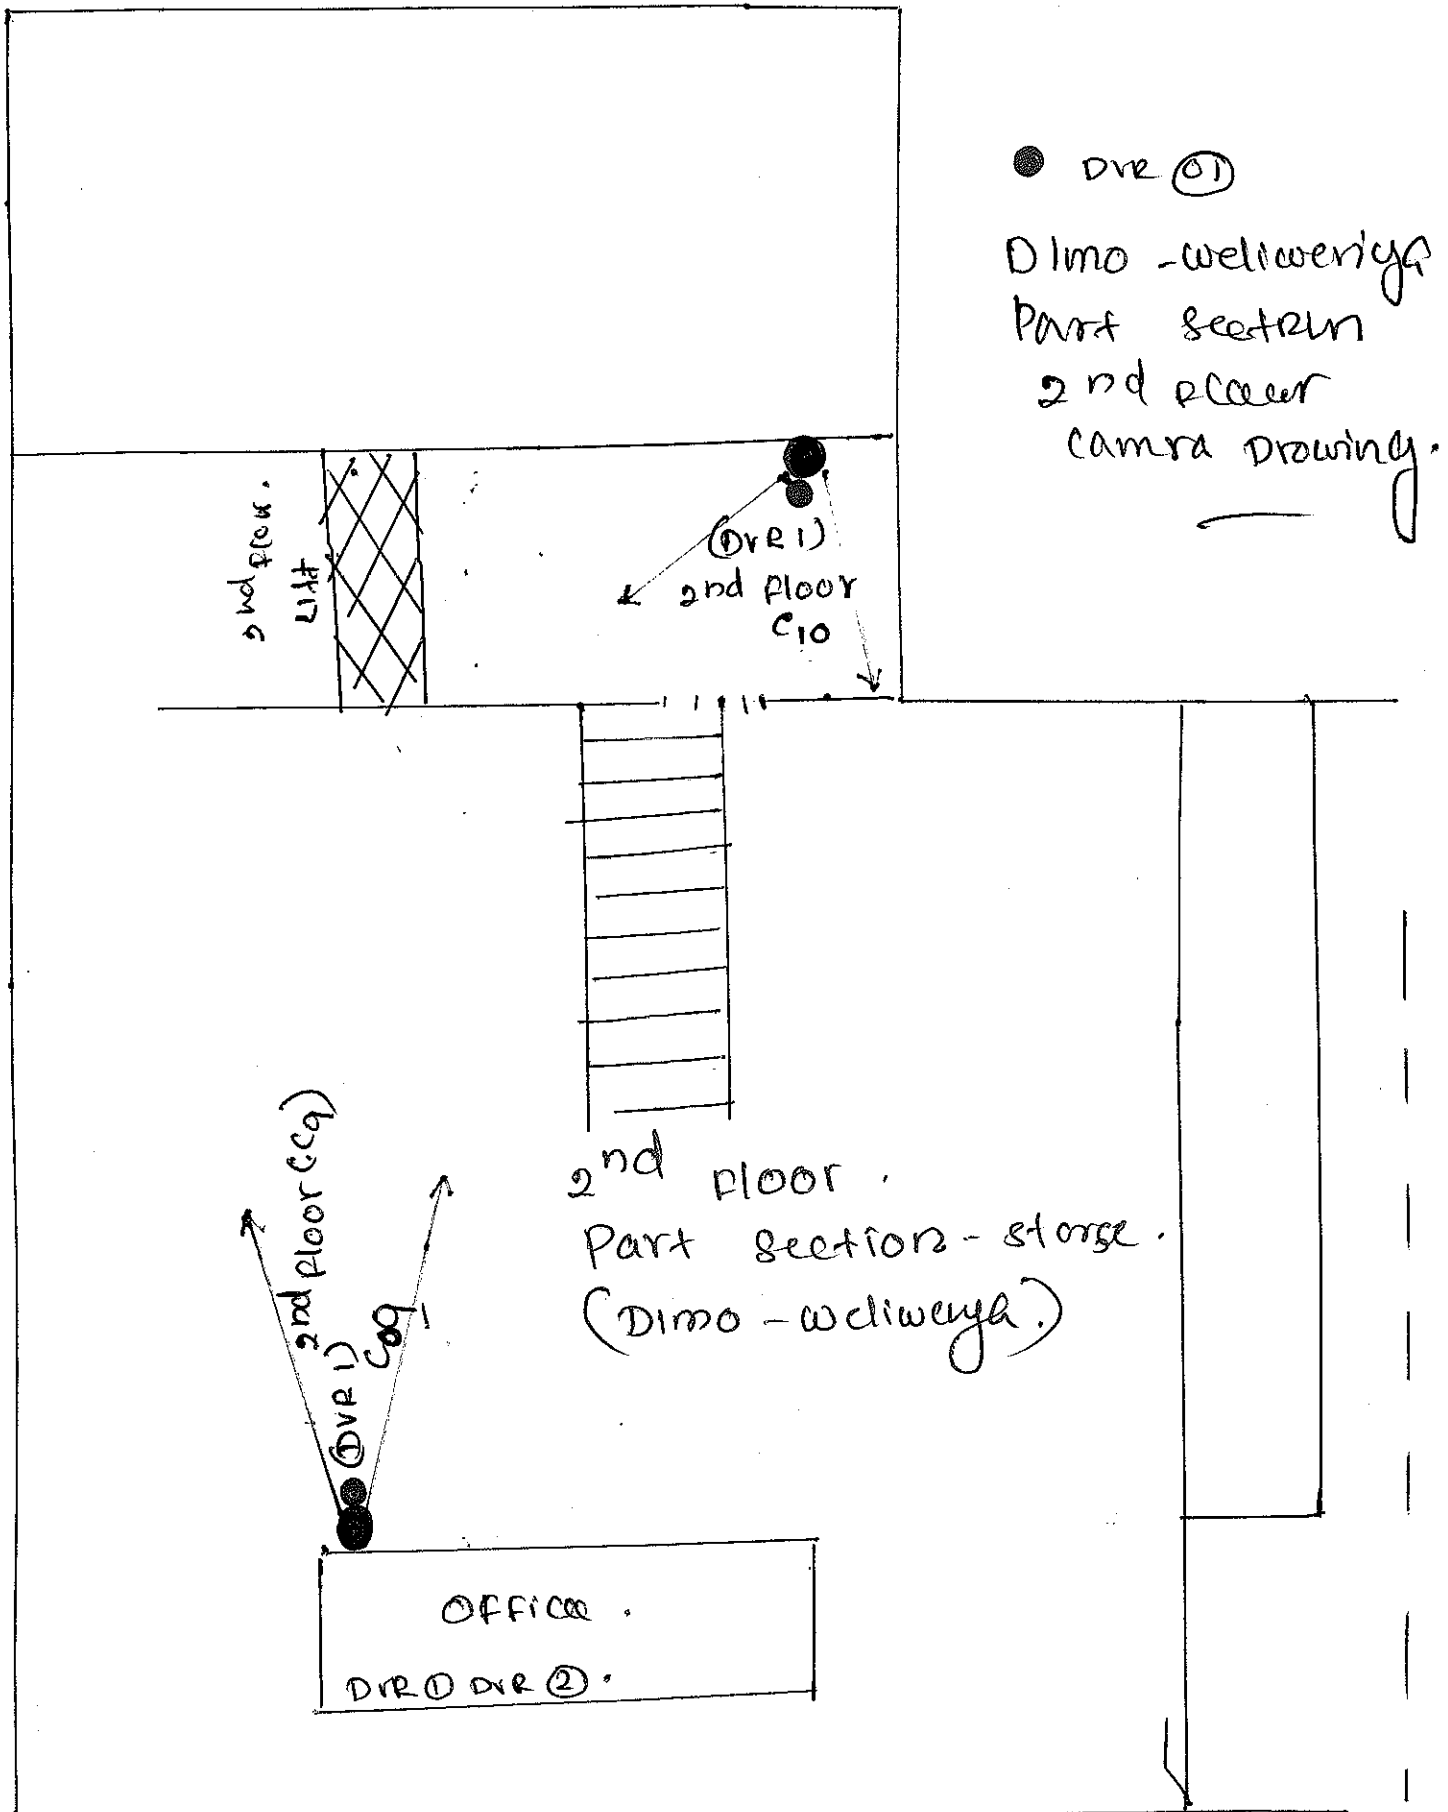 DVR 01
DImo - weliweriya
Part Seetion
2nd Floour
Camra Drowing.
2nd Floor.
Lift
(DVR 1)
2nd Floor
C10
2nd Floor (C9)
(DVR 1)
C09
2nd Floor.
Part Section - storge.
(Dimo - weliwerya.)
OFFice.
DVR 1 DVR 2.